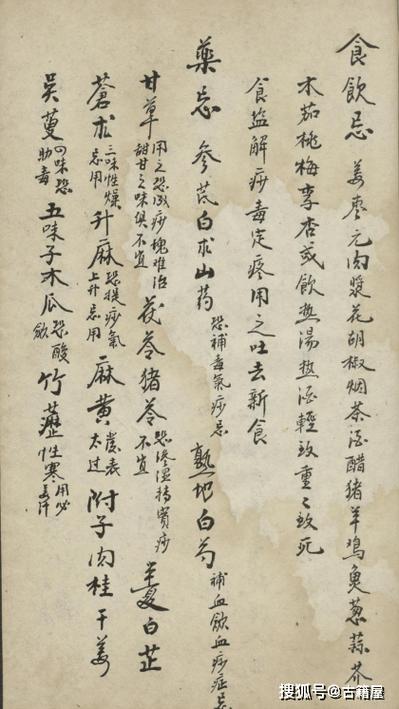 食飲忌 姜枣元肉漿花胡椒烟茶酒醋猪羊鸡魚葱蒜芥
木茄桃梅李杏或飲热湯热酒輕致重〻致死
食盐解痧毒定疼用之吐去新食
薬忌 參芪白术山药 恐補毒氣痧忌 熟地白芍 補血飲血痧症忌
甘草 用之恐成痧塊难治 甜甘之味俱不宜 茯苓猪苓 恐滲湿 實痧不宜 半夏白芷
蒼术 三味性燥忌用 升麻 恐提痧氣上升忌用 麻黄 表太过 附子肉桂干姜
吴萸 四味恐助毒 五味子木瓜 恐酸飲 竹 性寒用必姜汁
搜狐号@古籍屋